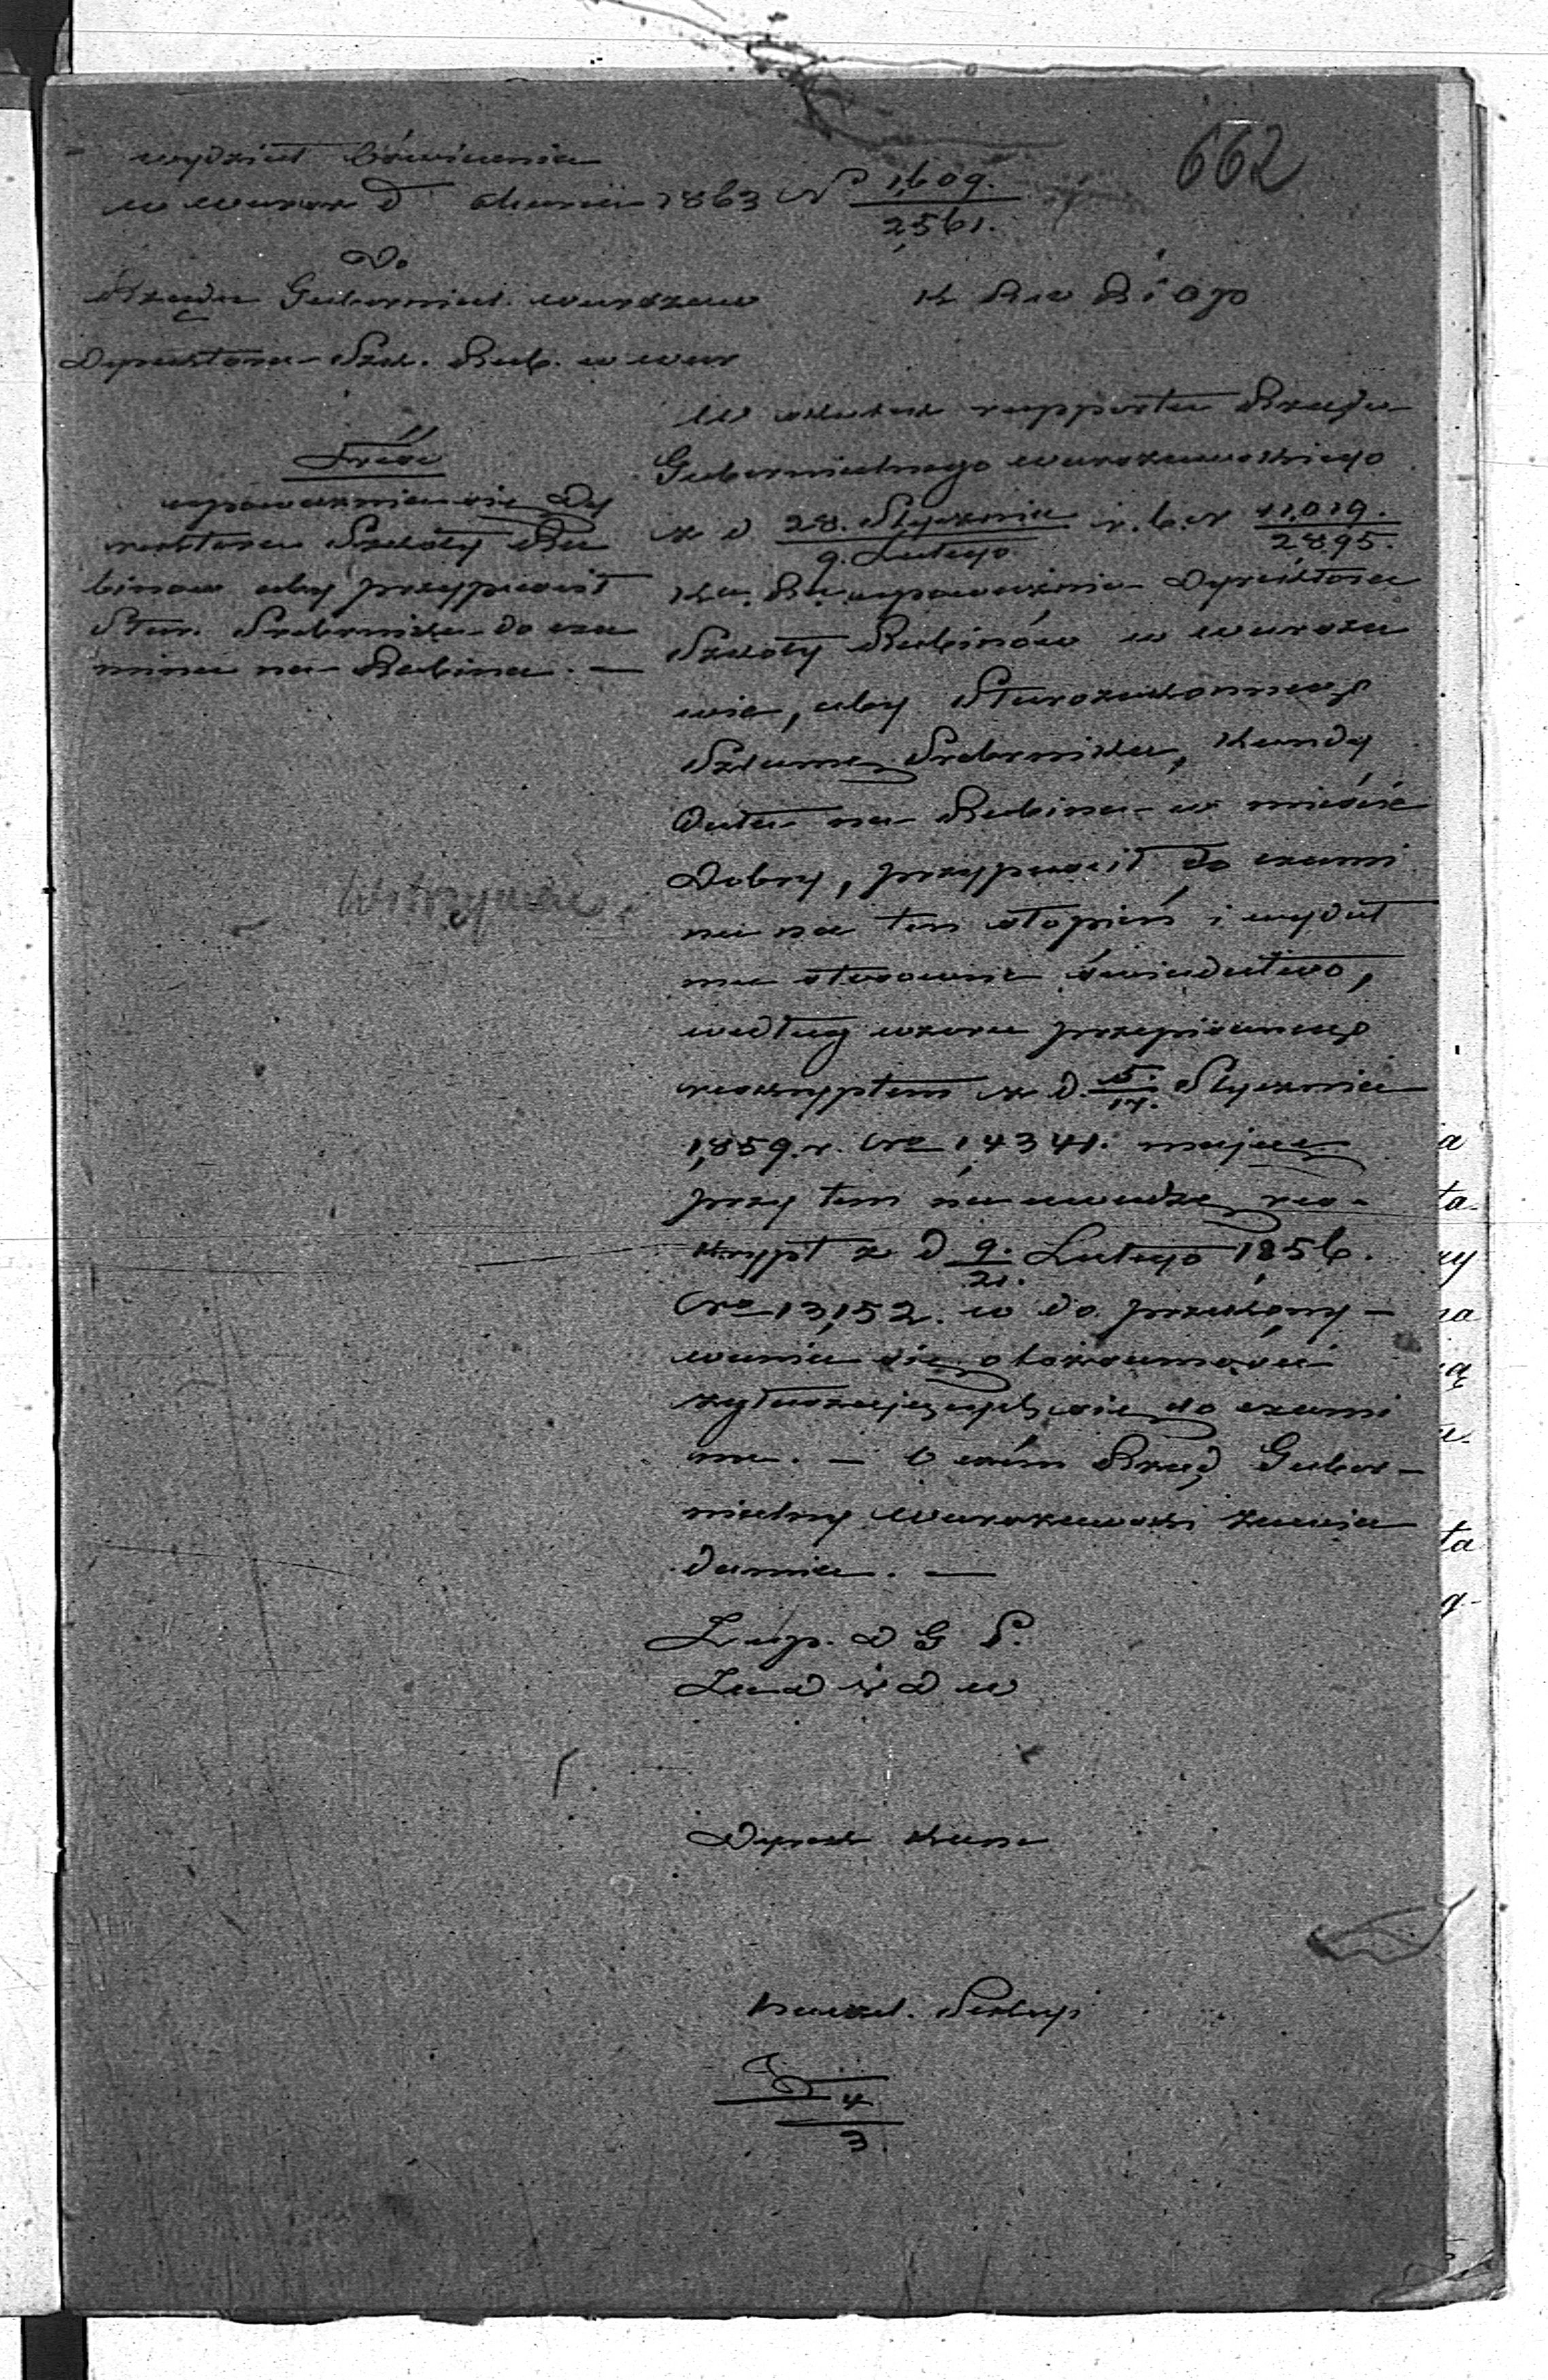 662
Wydział Oświecenia
w Warsz d Marca 1863 N 1,609.
2,561.
Do
Rządu Gubernial. Warszaw
Dyrektora Szk. Rab. w War
K R S W R i O P
Treść
upoważnia się Dy
rektora Szkoły Ra
binów aby przypuścił
Star. Srebrnika do exa
minu na Rabina. —
Wstrzymać.
W skutek rapportu Rządu
Gubernialnego Warszawskiego
z d 28. Stycznia r. b. N 11,019.
9. Lutego 2895.
upoważnia Dyrektora
Szkoły Rabinów w Warsza
wie, aby Starozakonnego
Szlamę Srebrnika, kandy
data na Rabina w mieście
Dobry, przypuścił do exami
nu na ten stopień i wydał
mu stosowne świadectwo,
według wzoru przepisanego
reskryptem z d. 5/17. Stycznia
1,859. r. Nro 14341. mając
przy tem na uwadze res-
krypt z d 9./21. Lutego 1856.
Nro 13,152. w do przekony-
wania się o tożsamości
zgłaszających się do exami
nu. — O czém Rząd Guber-
nialny Warszawski zawia
damia. —
Zup. D G P.
Dyrek Kanc
Naczel. Sekcyi
4
3.